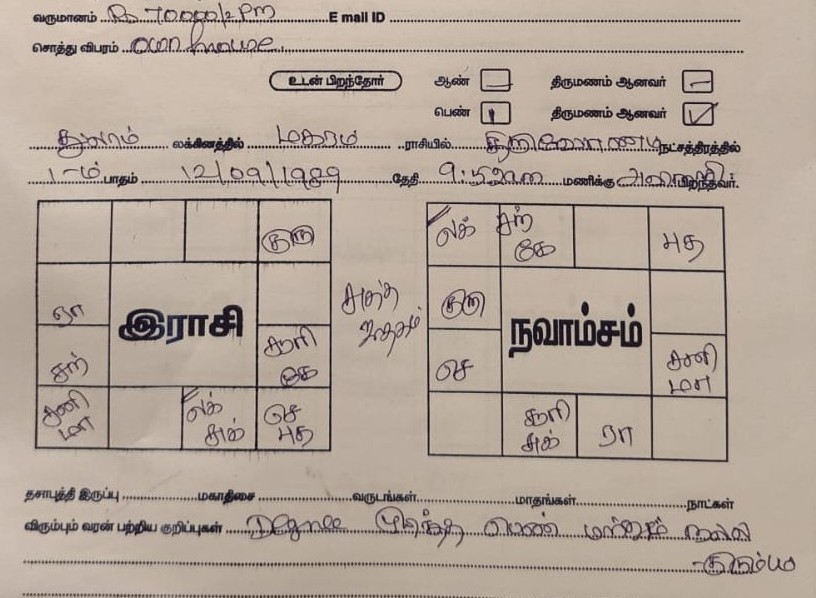 வருமானம் Rs 70000/- PM E mail ID
சொத்து விபரம் own house
உடன் பிறந்தோர் ஆண் – திருமணம் ஆனவர் –
பெண் 1 திருமணம் ஆனவர் ✓
துலாம் லக்கினத்தில் மகரம் ராசியில் திருவோணம் நட்சத்திரத்தில்
1-ம் பாதம் 12/09/1989 தேதி 9:52am மணிக்கு பிறந்தவர்.
குரு
ரா
இராசி
சந்
சூரி
கே
சனி
மா
லக்
சுக்
செ
புத
சுத்த
ஜாதகம்
லக்
சந்
கே
புத
குரு
நவாம்சம்
செ
சனி
மா
சூரி
சுக்
ரா
தசாபுத்தி இருப்பு மகாதிசை வருடங்கள் மாதங்கள் நாட்கள்
விரும்பும் வரன் பற்றிய குறிப்புகள் Degree முடித்த பெண் மற்றும் நல்ல
குடும்பம்